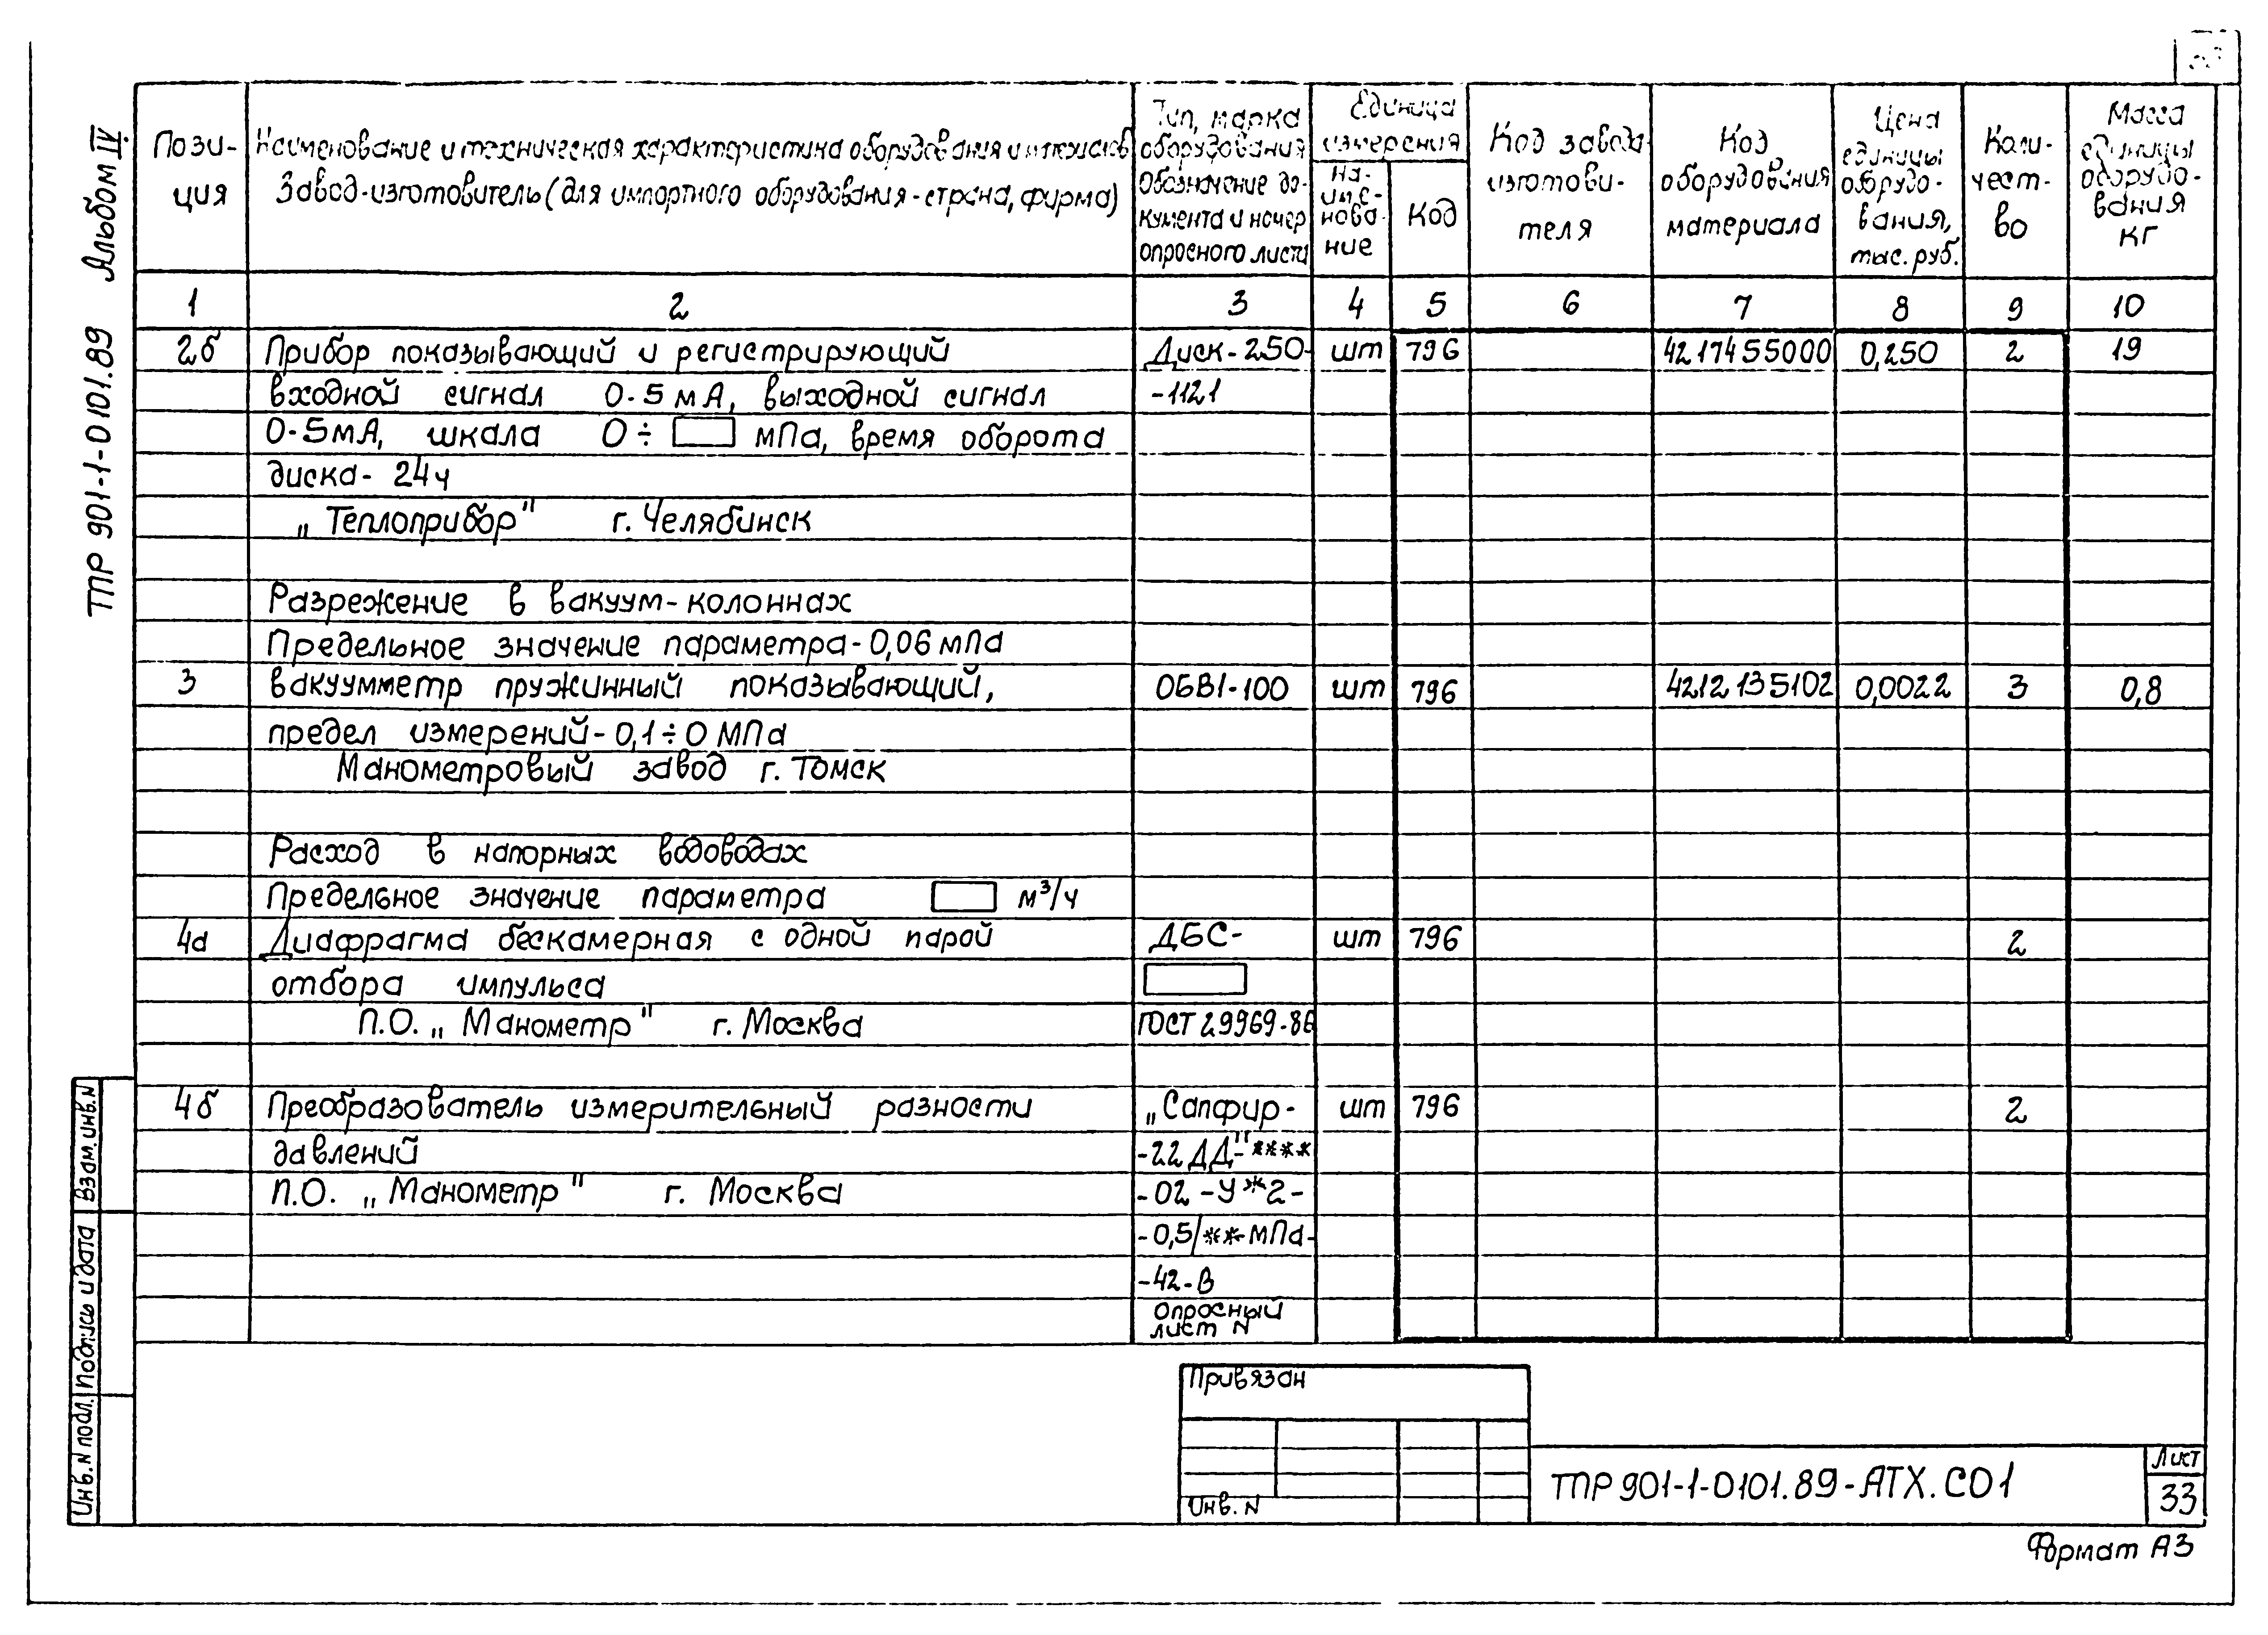 ТР 901-1-0101.89 Альбом IV.
Пози-
ция
Наименование и техническая характеристика оборудования и материалов
Завод-изготовитель (для импортного оборудования - страна, фирма)
Тип, марка
оборудования
Обозначение до-
кумента и номер
опросного листа
Единица
измерения
На-
име-
нова-
ние
Код
Код завода-
изготови-
теля
Код
оборудования
материала
Цена
единицы
оборудо-
вания,
тыс. руб.
Коли-
чест-
во
Масса
единицы
оборудо-
вания
кг
1 2 3 4 5 6 7 8 9 10
2б Прибор показывающий и регистрирующий Диск-250- шт 796 4217455000 0,250 2 19
входной сигнал 0-5 мА, выходной сигнал -1121
0-5мА, шкала 0÷ мПа, время оборота
диска- 24ч
„Теплоприбор" г. Челябинск
Разрежение в вакуум-колоннах
Предельное значение параметра-0,06 мПа
3 вакуумметр пружинный показывающий, ОБВ1-100 шт 796 4212135102 0,0022 3 0,8
предел измерений-0,1÷0 МПа
Манометровый завод г. Томск
Расход в напорных водоводах
Предельное значение параметра м³/ч
4а Диафрагма бескамерная с одной парой ДБС- шт 796 2
отбора импульса
П.О. „Манометр" г. Москва ГОСТ 29969-86
4б Преобразователь измерительный разности „Сапфир- шт 796 2
давлений -22 ДД"-****
П.О. „Манометр" г. Москва -02-У*2-
-0,5/**мПа-
-42-В
опросный
лист N
Взам.инв.N
Подпись и дата
Инв.N подл.
Привязан
Инв. N
ТР 901-1-0101.89-АТХ.СО1
Лист
33
Формат А3